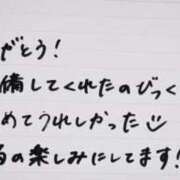 がとう!
備してくれたのびっく
めてうれしかった☺
るの楽しみにしてます!